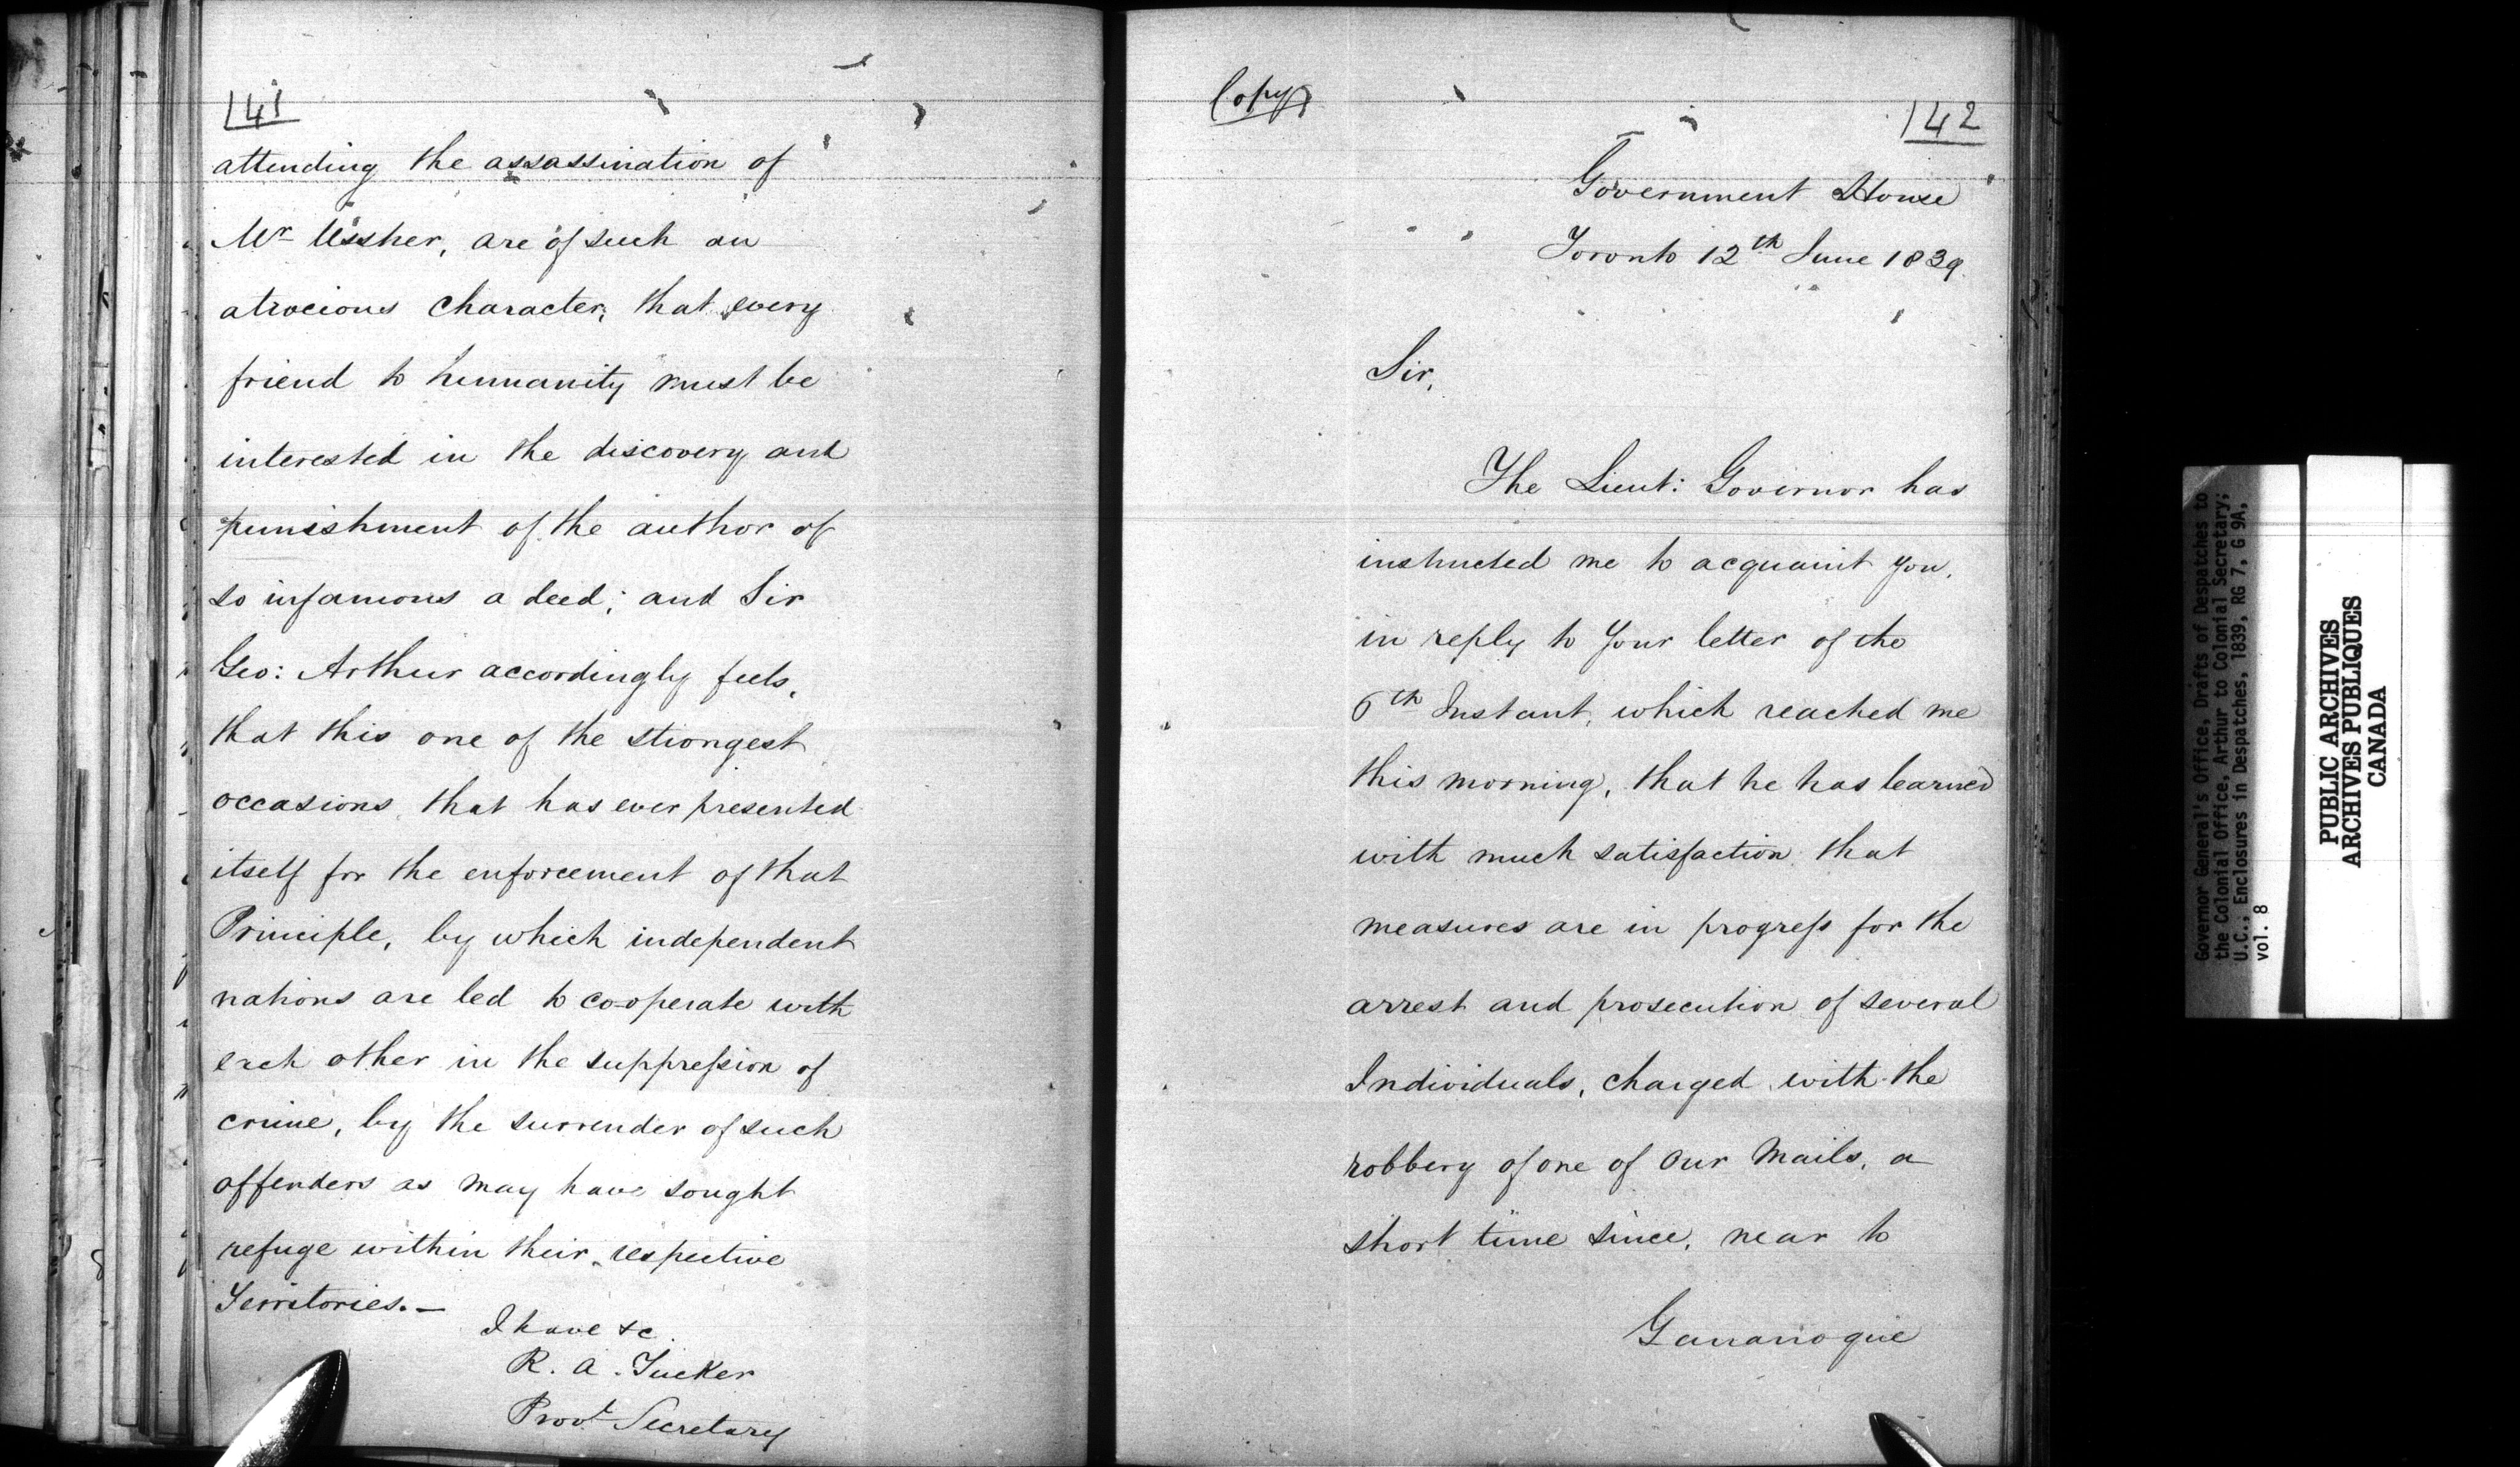 141
attending the assassination of
Mr Ussher, are of such an
atrocious character, that every
friend to humanity must be
interested in the discovery and
punishment of the author of
so infamous a deed; and Sir
Geo: Arthur accordingly feels,
that this one of the strongest
occasions that has ever presented
itself for the enforcement of that
Principle, by which independent
nations are led to co-operate with
each other in the suppression of
crime, by the surrender of such
offenders as may have sought
refuge within their respective
Territories.—
I have &c.
R. A. Tucker
Provl Secretary
Copy
142
Government House
Toronto 12th June 1839.
Sir,
The Lieut: Governor has
instructed me to acquaint you,
in reply to your letter of the
6th Instant, which reached me
this morning, that he has learned
with much satisfaction that
measures are in progress for the
arrest and prosecution of several
Individuals, charged with the
robbery of one of our Mails, a
short time since, near to
Gananoque
Governor General's Office, Drafts of Despatches to
the Colonial Office, Arthur to Colonial Secretary;
U.C.; Enclosures in Despatches, 1839, RG 7, G 9A,
vol. 8
PUBLIC ARCHIVES
ARCHIVES PUBLIQUES
CANADA